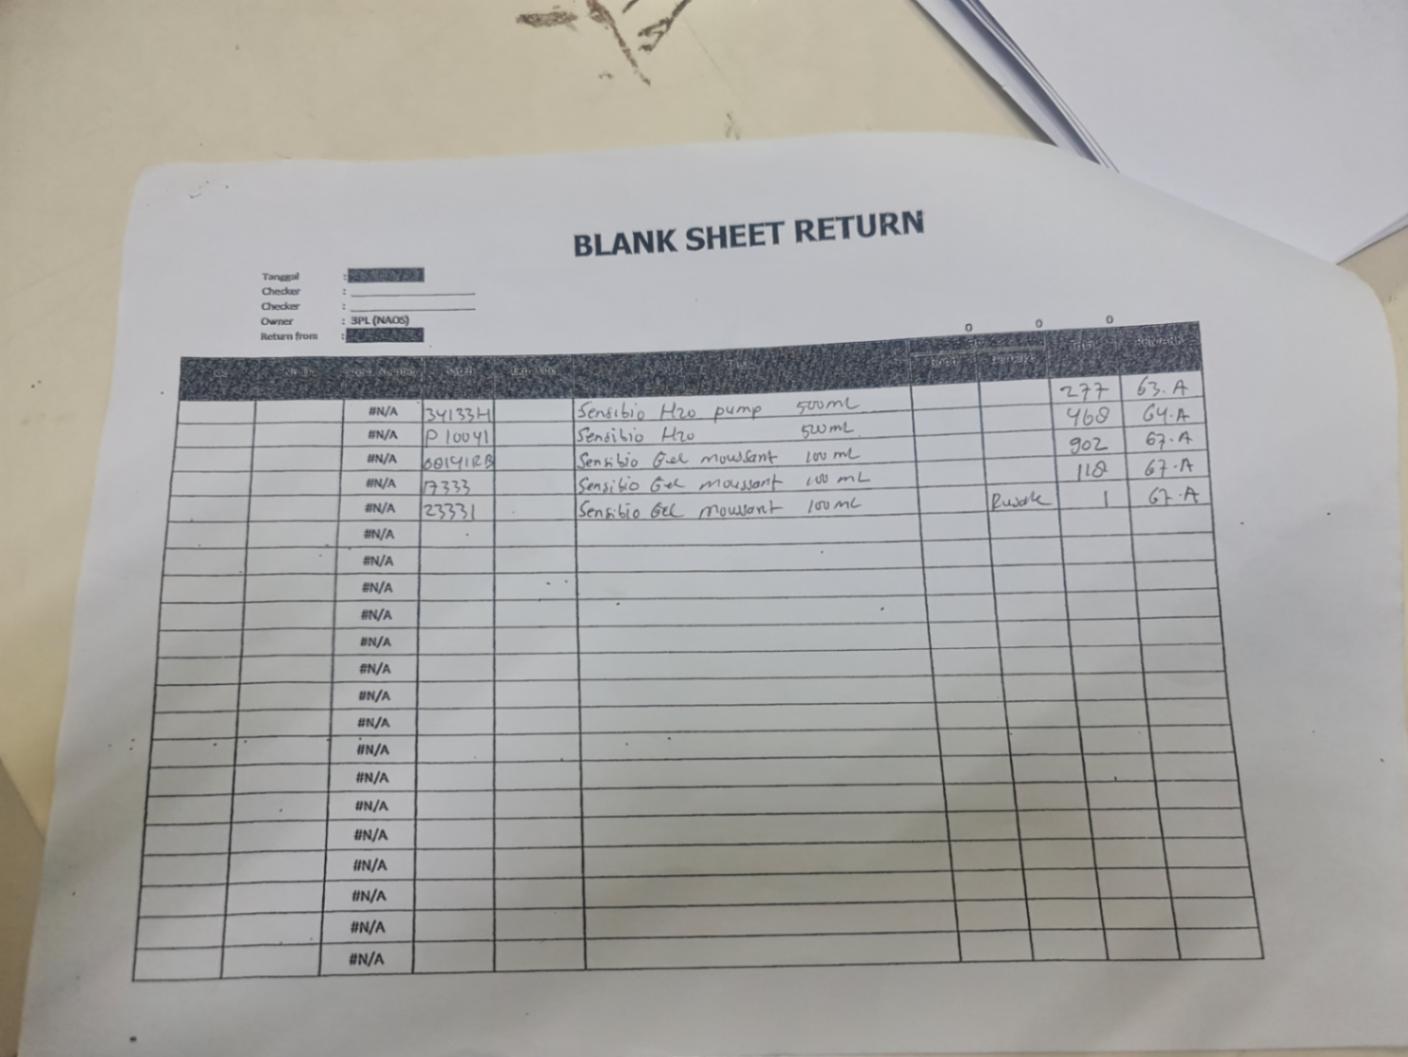 BLANK SHEET RETURN
Tanggal :
Checker :
Checker :
Owner : 3PL (NAOS)
Return from :
0 0 0
#N/A 34133H Sensibio H2O pump 500 mL 277 63.A
#N/A P10041 Sensibio H2O 500 mL 468 64.A
#N/A Sensibio Gel moussant 100 mL 902 67.A
#N/A 17333 Sensibio Gel moussant 100 mL 118 67.A
#N/A 23331 Sensibio Gel moussant 100 mL Rusak 1 67.A
#N/A
#N/A
#N/A
#N/A
#N/A
#N/A
#N/A
#N/A
#N/A
#N/A
#N/A
#N/A
#N/A
#N/A
#N/A
#N/A